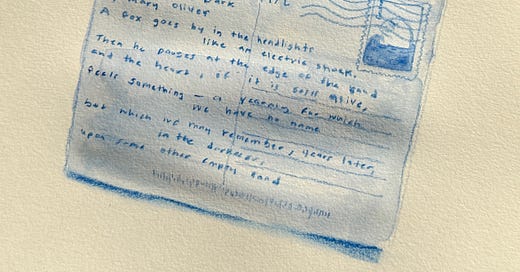 Mary Oliver
A fox goes by in the headlights
like an electric shock.
Then he pauses at the edge of the road
and the heart, if it is still alive,
feels something — a yearning for which
we have no name
but which we may remember, years later,
in the darkness,
upon some other empty road